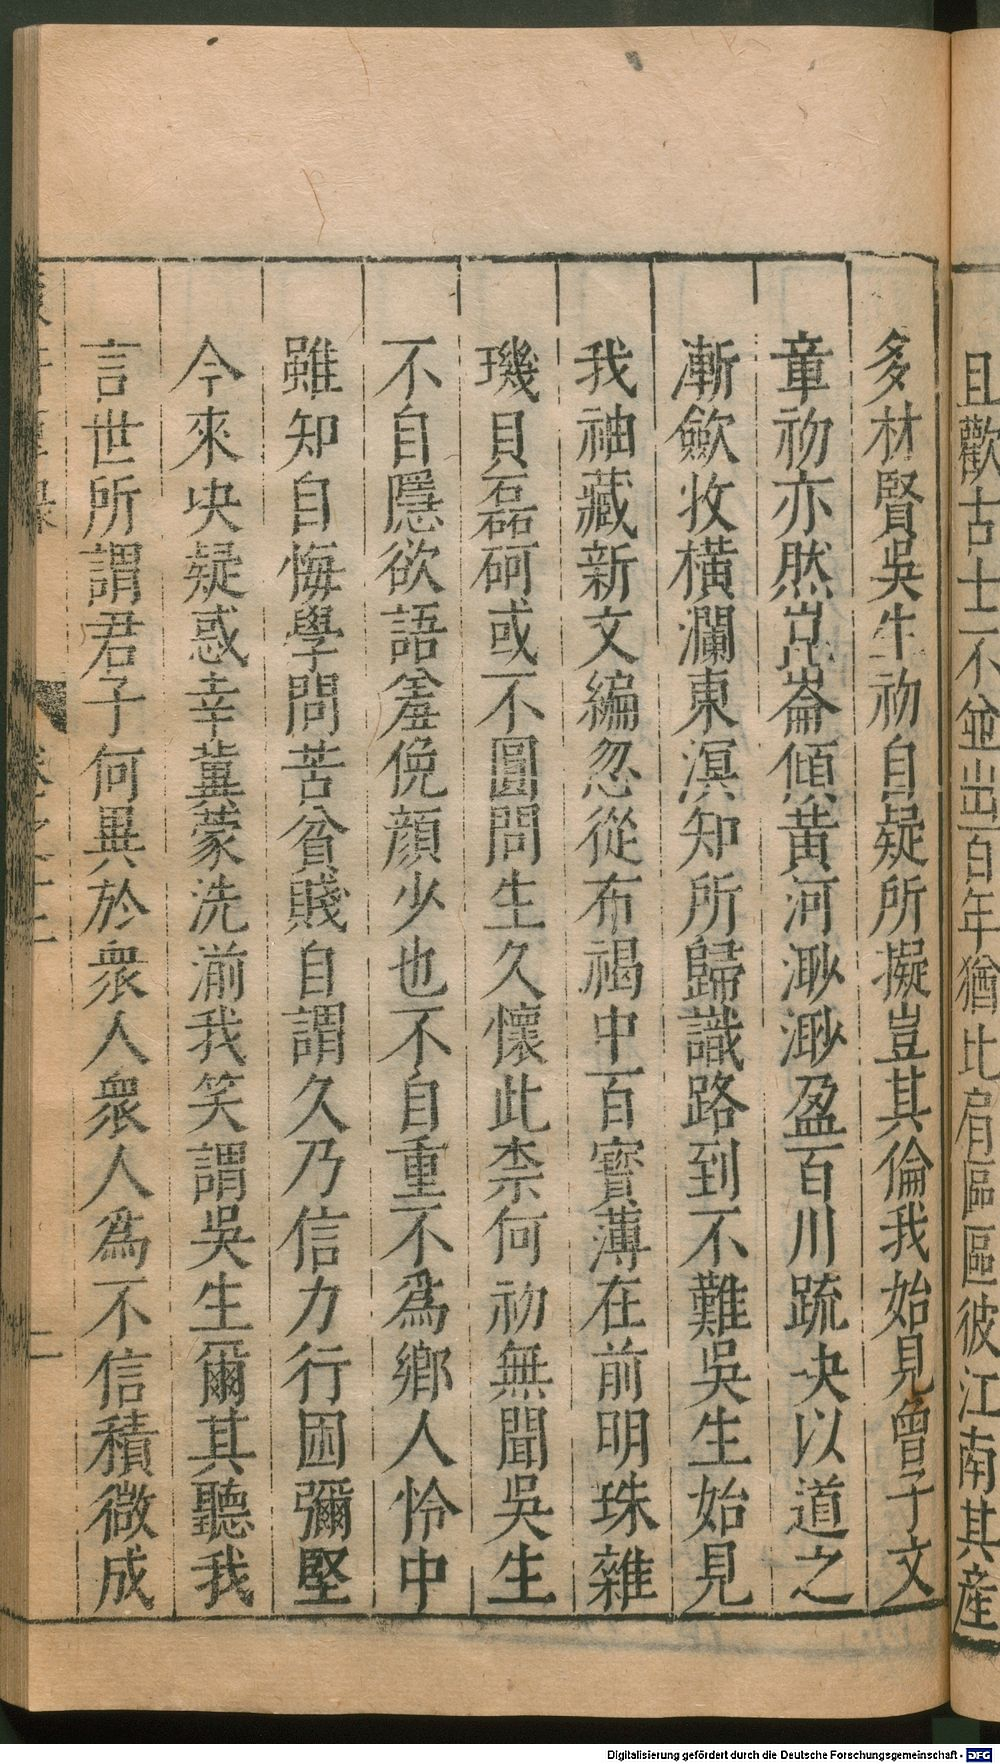 且歡古士不並出百年猶比肩區區彼江南其產
多材賢吳生初自疑所擬豈其倫我始見曾子文
章初亦然崑崙傾黃河渺渺盈百川䟽決以道之
漸斂收橫瀾東溟知所歸識路到不難吳生始見
我袖藏新文編忽從布褐中百寶薄在前明珠雜
璣貝磊砢或不圓問生久懷此柰何初無聞吳生
不自隱欲語羞俛顏少也不自重不爲鄉人怜中
雖知自悔學問苦貧賤自謂久乃信力行困彌堅
今來决疑惑幸冀蒙洗湔我笑謂吳生爾其聽我
言世所謂君子何異於衆人衆人爲不信積微成
卷之十二
Digitalisierung gefördert durch die Deutsche Forschungsgemeinschaft - DFG